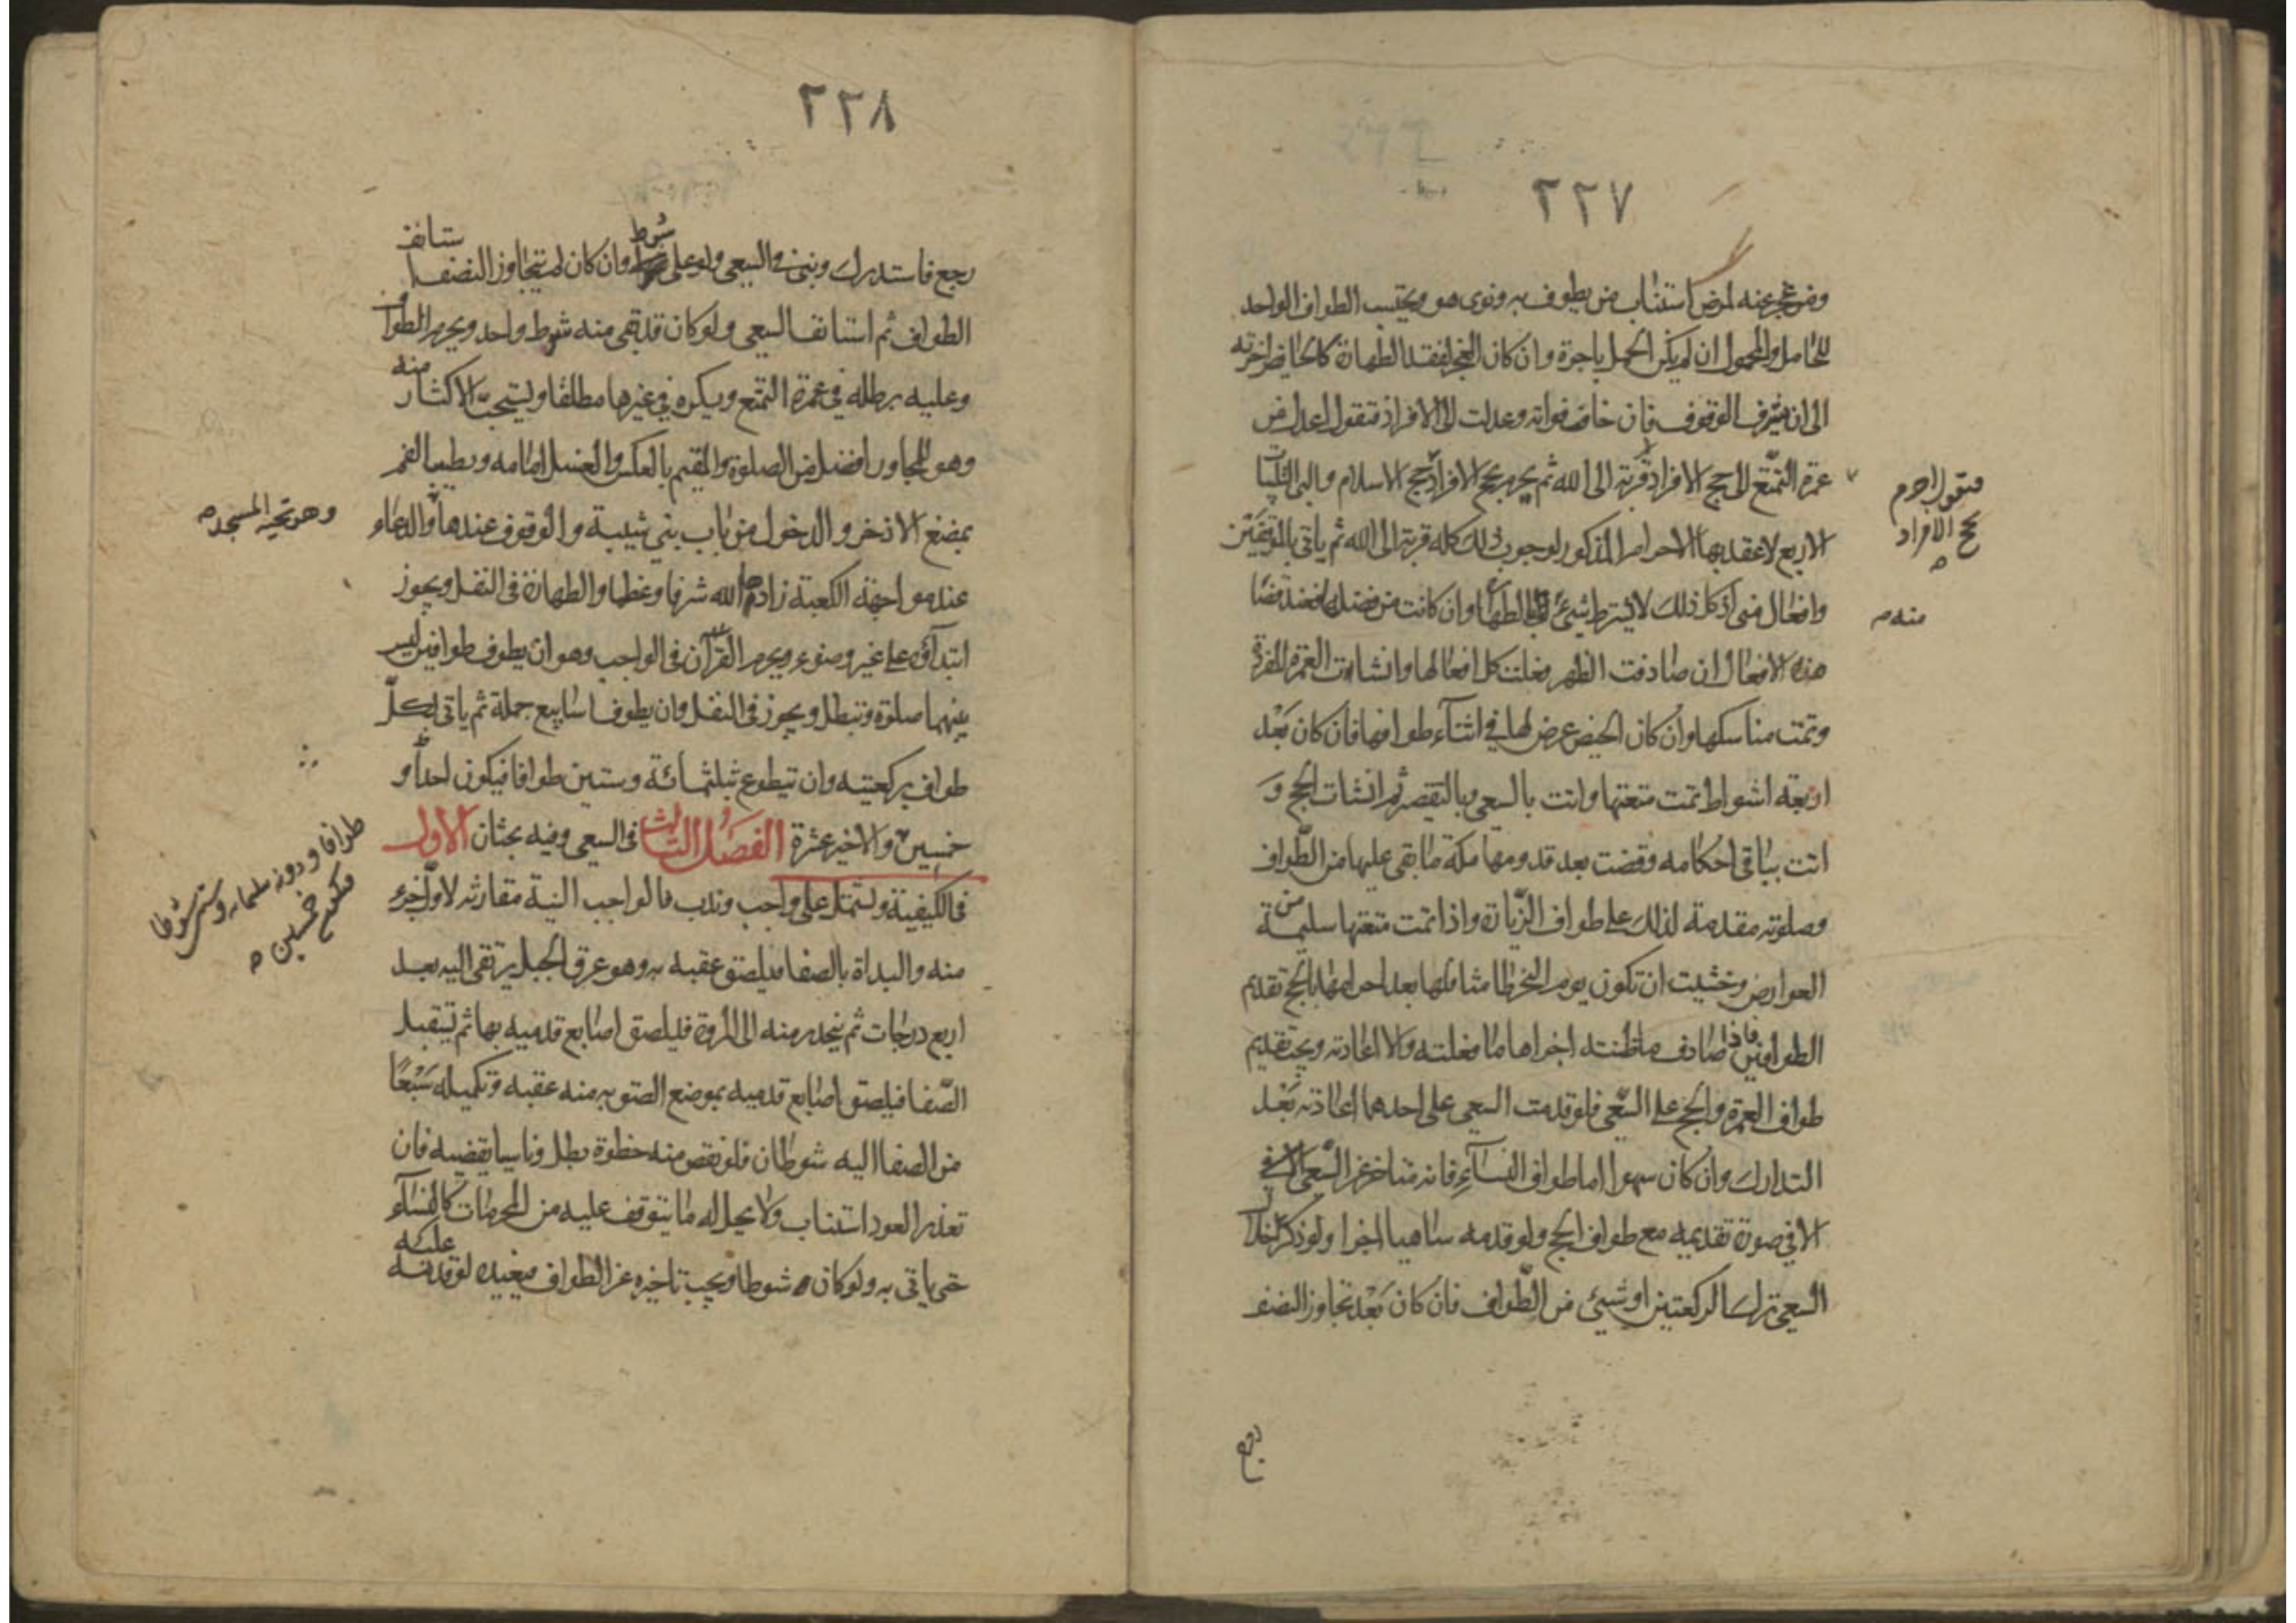 ٢٢٧
ومن عجز عنه لمرض استناب من يطوف به ونوى هو ويحتسب الطواف الواحد
للحامل والمحمول ان لم يكن الحمل باجرة وان كان العجز لفقد الطهارة كالحائض اخرته
الى ان الوقوف فان خافت فواته وعدلت الى الافراد فتقول اعدل من
عمرة التمتع الى حج الافراد قربة الى الله ثم يحرم بحج الافراد حج الاسلام والبى التلبيات
الاربع لاعقد بها الاحرام المذكور لوجوب ذلك كله قربة الى الله ثم ياتى بالموقفين
وافعال منى اذ كل ذلك لا يشترط شيئ بالطهارة وان كانت من فضله فعند قضا
هذه الافعال ان صادفت الطهر فعلت كل افعالها وانشات العمرة المفردة
وتمت مناسكها وان كان الحيض عرض لها في اثناء طوافها فان كان بعد
اربعة اشواط تمت متعتها واتت بالسعي وبالتقصير ثم انشات الحج و
اتت بباقي احكامه وقضت بعد قدومها مكة ما بقي عليها من الطواف
وصلوته مقدمة لذلك على طواف الزيارة واذا تمت متعتها سليمة من
العوارض وخشيت ان تكون يوم النحر طامثا فلها بعد احرامها بالحج تقديم
الطوافين فاذا صادف ما ظنته اجزاها ما فعلته والا اعادته ويجب تقديم
طواف العمرة والحج على السعي فلو قدمت السعي على احدهما اعادته بعد
التدارك وان كان سهوا اما طواف النساء فانه متاخر عن السعي
الا في صورة تقديمه مع طواف الحج ولو قدمه ساهيا اجزا ولو ذكر خلال
السعي ترك الركعتين او شيئ من الطواف فان كان بعد تجاوز النصف
فتقول احرم
بحج الافراد
منه
رجع
٢٢٨
رجع فاستدرك وبنى في السعي ولو على شوط وان كان لم يتجاوز النصف استانف
الطواف ثم استانف السعي ولو كان قد بقى منه شوط واحد ويحرم الطواف
وعليه برطلة في عمرة التمتع ويكره في غيرها مطلقا ويستحب الاكثار منه
وهو للمجاور افضل من الصلوة والمقيم بالعكس والغسل امامه وبطيب الفم
بمضغ الاذخر والدخول من باب بني شيبة والوقوف عندها والدعاء
عند مواجهة الكعبة زادها الله شرفا وعظما والطهارة في النفل ويجوز
ابتداؤه على غير وضوء ويحرم القرآن في الواجب وهو ان يطوف طوافين ليس
بينهما صلوة وتبطل ويجوز في النفل وان يطوف اسابيع جملة ثم ياتى لكل
طواف بركعتيه وان يتطوع بثلثمائة وستين طوافا فيكون احدا و
خمسين والاخير عشرة الفصل الثالث في السعي وفيه بحثان الاول
في الكيفية وتشتمل على واجب وندب فالواجب النية مقارنة لاول جزء
منه والبداة بالصفا فيلصق عقبه به وهو عرق الجبل يرتقى اليه بعد
اربع درجات ثم ينحدر منه الى المروة فيلصق اصابع قدميه بها ثم يستقبل
الصفا فيلصق اصابع قدميه بموضع الصق به منه عقبه وتكميله سبعا
من الصفا اليه شوطان فلو نقص منه خطوة بطل وناسيا يقضيه فان
تعذر العود استناب ولا يحل له ما يتوقف عليه من المحرمات كالنساء
حتى ياتى به ولو كان شوطا ويجب تاخيره عن الطواف فيعيده لو قدمه عليه
وهو تحية المسجد
طوافا
خمسين